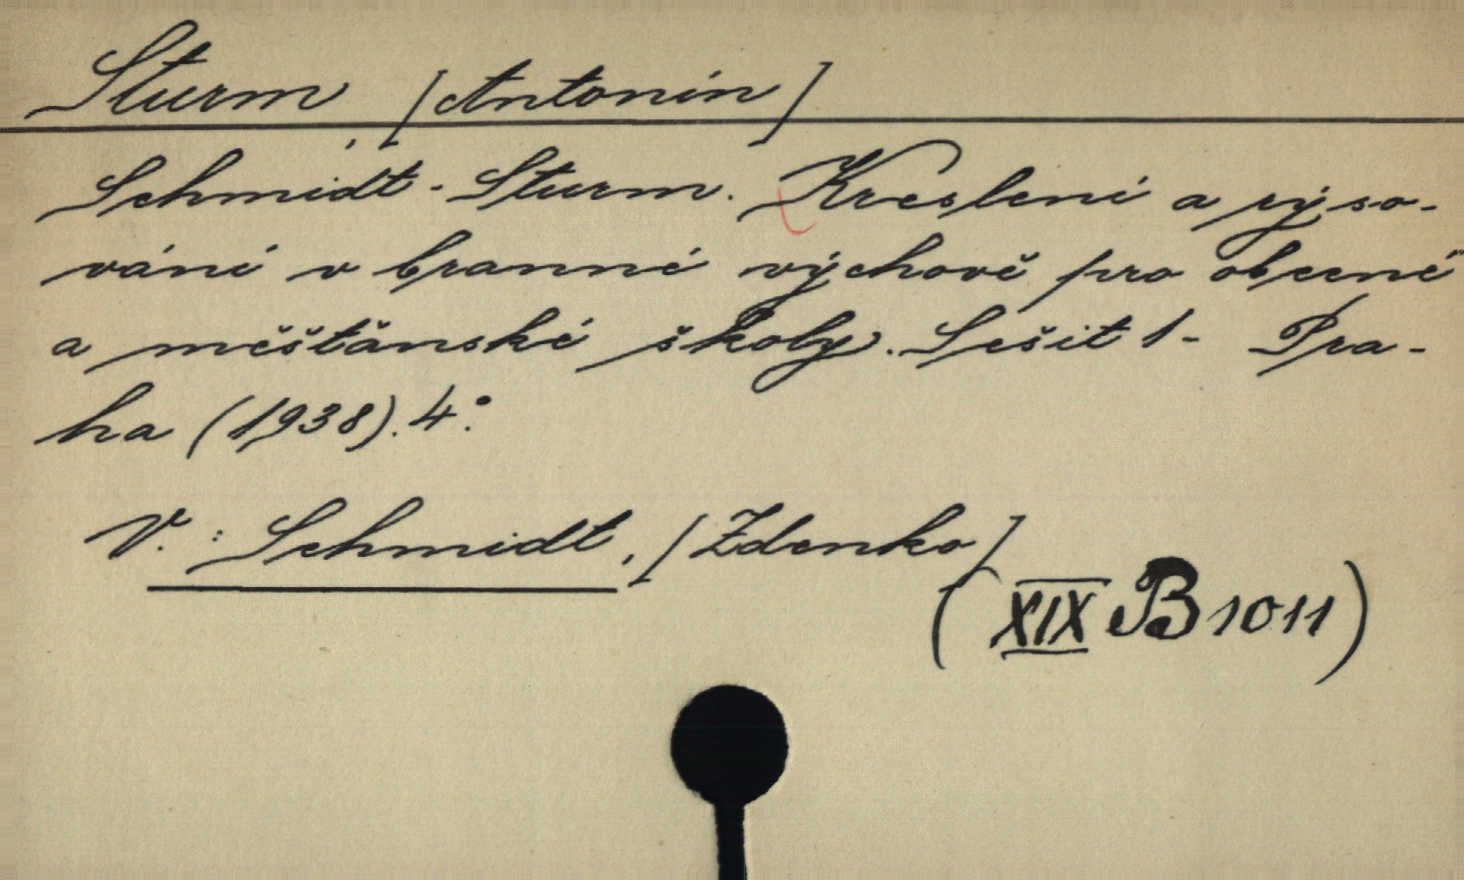 Sturm, [Antonín]
Schmidt-Sturm. Kreslení a rýso-
vání v branné výchově pro obecné
a měšťanské školy. Sešit 1- Pra-
ha (1938). 4°.
V.: Schmidt, [Zdenko]
(XIX B 1011)